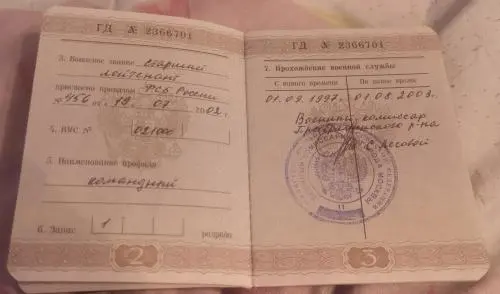 ГД № 2366701
3. Воинское звание старший
лейтенант
присвоено приказом ФСБ России
№ 456 от « 19 » 07 2002 г.
4. ВУС № 021000
5. Наименование профиля
командный
6. Запас 1 разряда
2
ГД № 2366701
7. Прохождение военной службы
С какого времени По какое время
01.09.1997г. 01.08.2003г.
Военный комиссар
Преображенского р-на
С. Лесовой
11
3